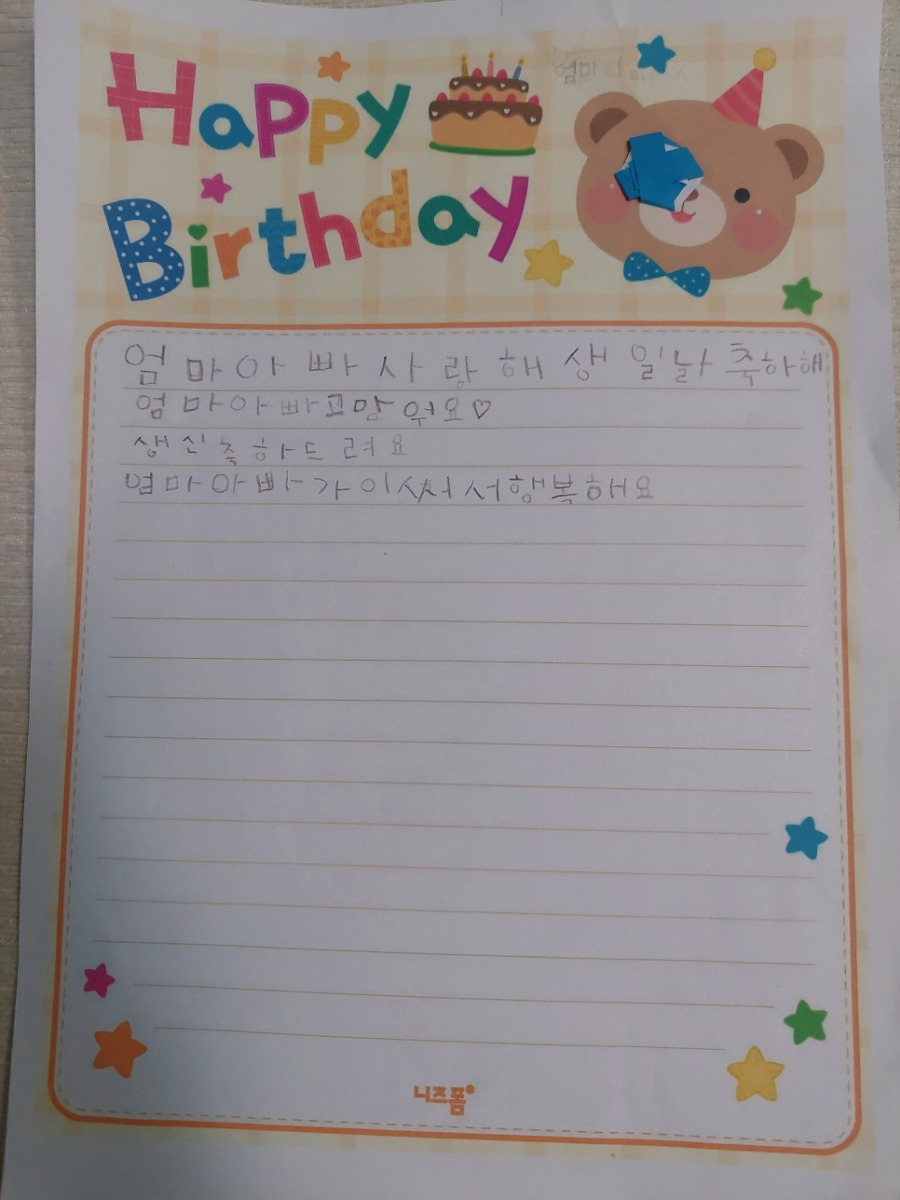 Happy
Birthday
엄마아빠사랑해생일날축하해
엄마아빠고맘워요♡
생신축하드려요
엄마아빠가이써서행복해요
니즈폼